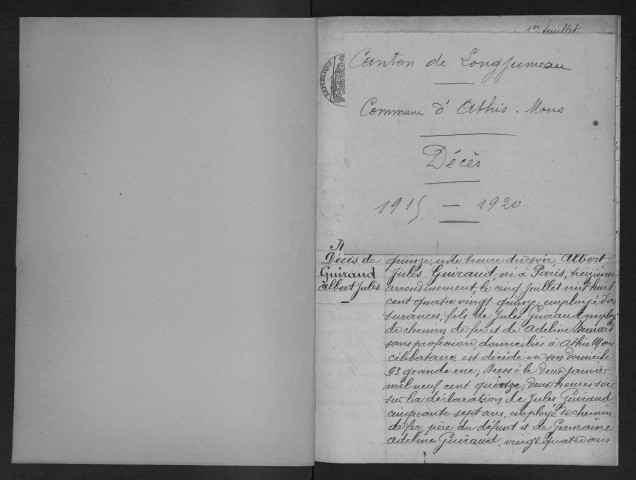 1er feuillet
REPUBLIQUE
Canton de Longjumeau
Commune d'Athis-Mons
Décès
1915 - 1920
Décès de
Guiraud
Albert Jules
quinze, une heure du soir, Albert
Jules Guiraud, né à Paris, treizième
arrondissement, le cinq juillet mil huit
cent quatre vingt quinze, employé d'as
surances, fils de Jules Guiraud, employé
de chemin de fer et de Adeline
sans profession, domiciliés à Athis Mons
célibataire, est décédé en son domicile
93 grande rue; Dressé le deux janvier
mil neuf cent quinze, deux heures soir
sur la déclaration de Jules Guiraud
cinquante sept ans, employé de chemin
de fer père du défunt et de Germaine
Adeline Guiraud, vingt quatre ans